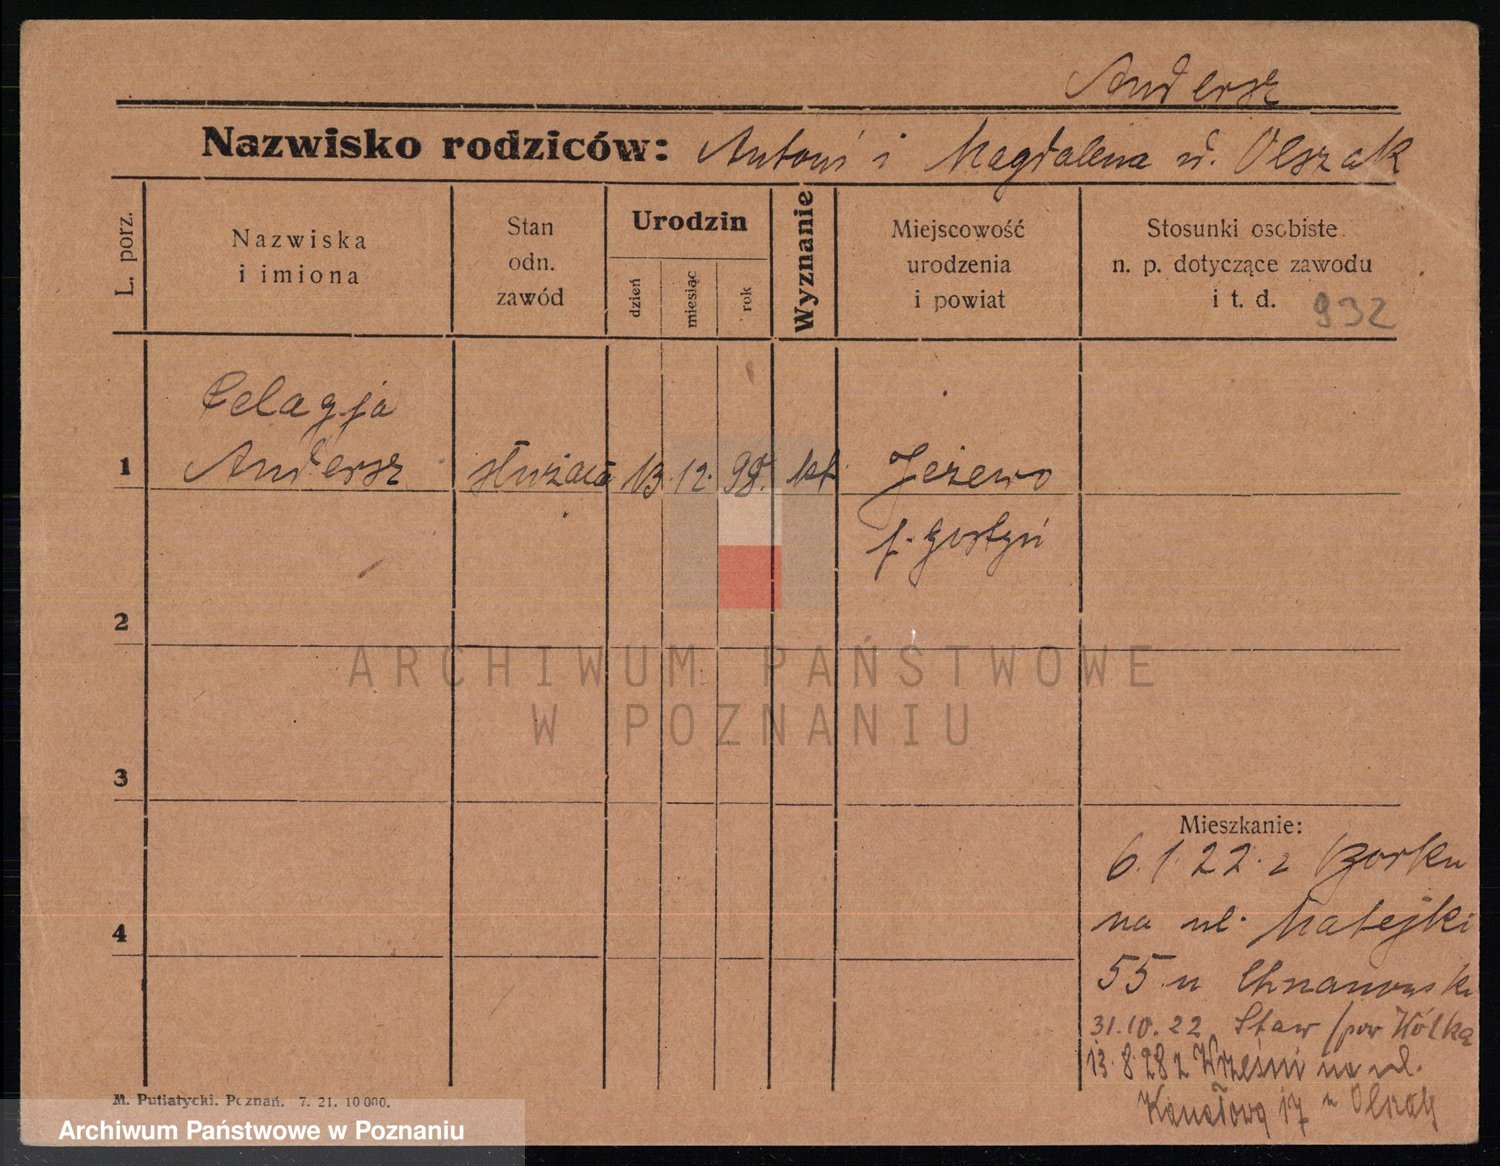 Andersz
Nazwisko rodziców: Antoni i Magdalena u. Olszak
L. porz.
Nazwiska
i imiona
Stan
odn.
zawód
Urodzin
dzień
miesiąc
rok
Wyznanie
Miejscowość
urodzenia
i powiat
Stosunki osobiste
n. p. dotyczące zawodu
i t. d. 932
Pelagja
1 Andersz służąca 13. 12. 98. kat. Jeżewo
p. Gostyń
2
ARCHIWUM PAŃSTWOWE
W POZNANIU
3
Mieszkanie:
6.1.22. z
4 na ul. Matejki
55 u
31.10.22 Staw
13.8.28 z Wrześni na ul.
Kanałową 17 u Olszak
M. Putiatycki. Poznań. 7. 21. 10 000.
Archiwum Państwowe w Poznaniu